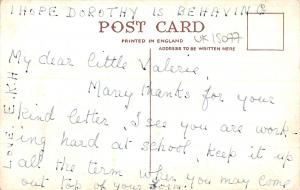 I HOPE DOROTHY IS BEHAVING
POST CARD
PRINTED IN ENGLAND
ADDRESS TO BE WRITTEN HERE
UK15077
My dear little Valerie,
Many thanks for your
kind letter, I see you are work-
ing hard at school, keep it up
all the term when you may come
out top of your
LOVE